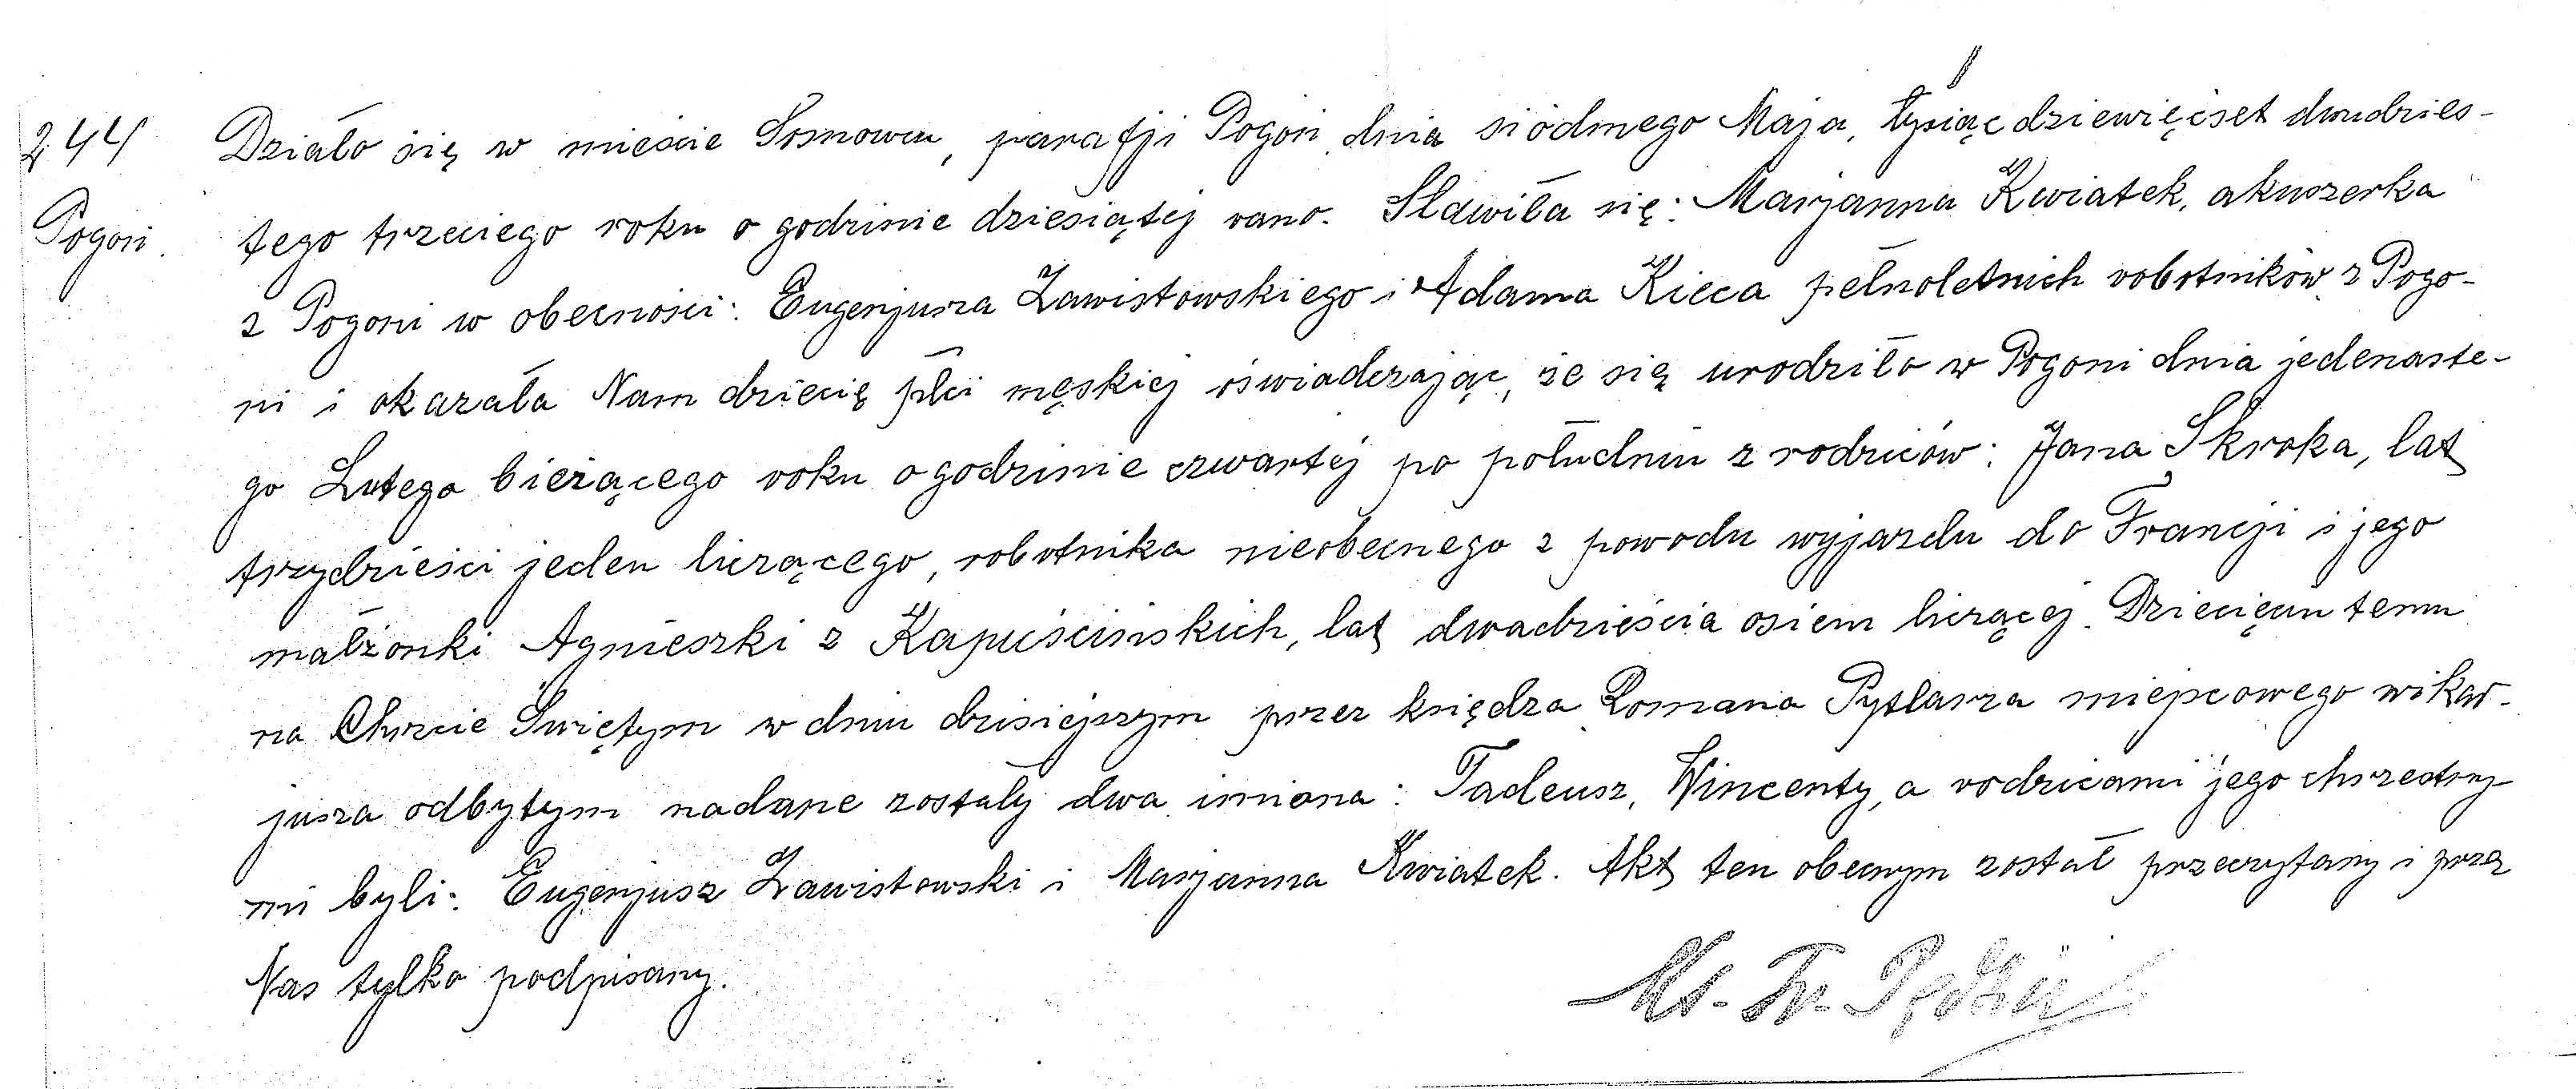 244
Pogoń.
Działo się w mieście Sosnowcu, parafji Pogoń, dnia siódmego Maja, tysiąc dziewięćset dwudzies-
tego trzeciego roku o godzinie dziesiątej rano. Stawiła się: Marjanna Kwiatek, akuszerka
z Pogoni w obecności: Eugenjusza Zawistowskiego i Adama Kieca pełnoletnich robotników z Pogo-
ni i okazała Nam dziecię płci męskiej oświadczając, że się urodziło w Pogoni dnia jedenaste-
go Lutego bieżącego roku o godzinie czwartej po południu z rodziców: Jana Skroka, lat
trzydzieści jeden liczącego, robotnika nieobecnego z powodu wyjazdu do Francji i jego
małżonki Agnieszki z Kapuścińskich, lat dwadzieścia osiem liczącej. Dziecięciu temu
na Chrzcie Świętym w dniu dzisiejszym przez księdza Romana Pytlasza miejscowego wikar-
jusza odbytym nadane zostały dwa imiona: Tadeusz, Wincenty, a rodzicami jego chrzestny-
mi byli: Eugenjusz Zawistowski i Marjanna Kwiatek. Akt ten obecnym został przeczytany i przez
Nas tylko podpisany.
Ks. Fr.